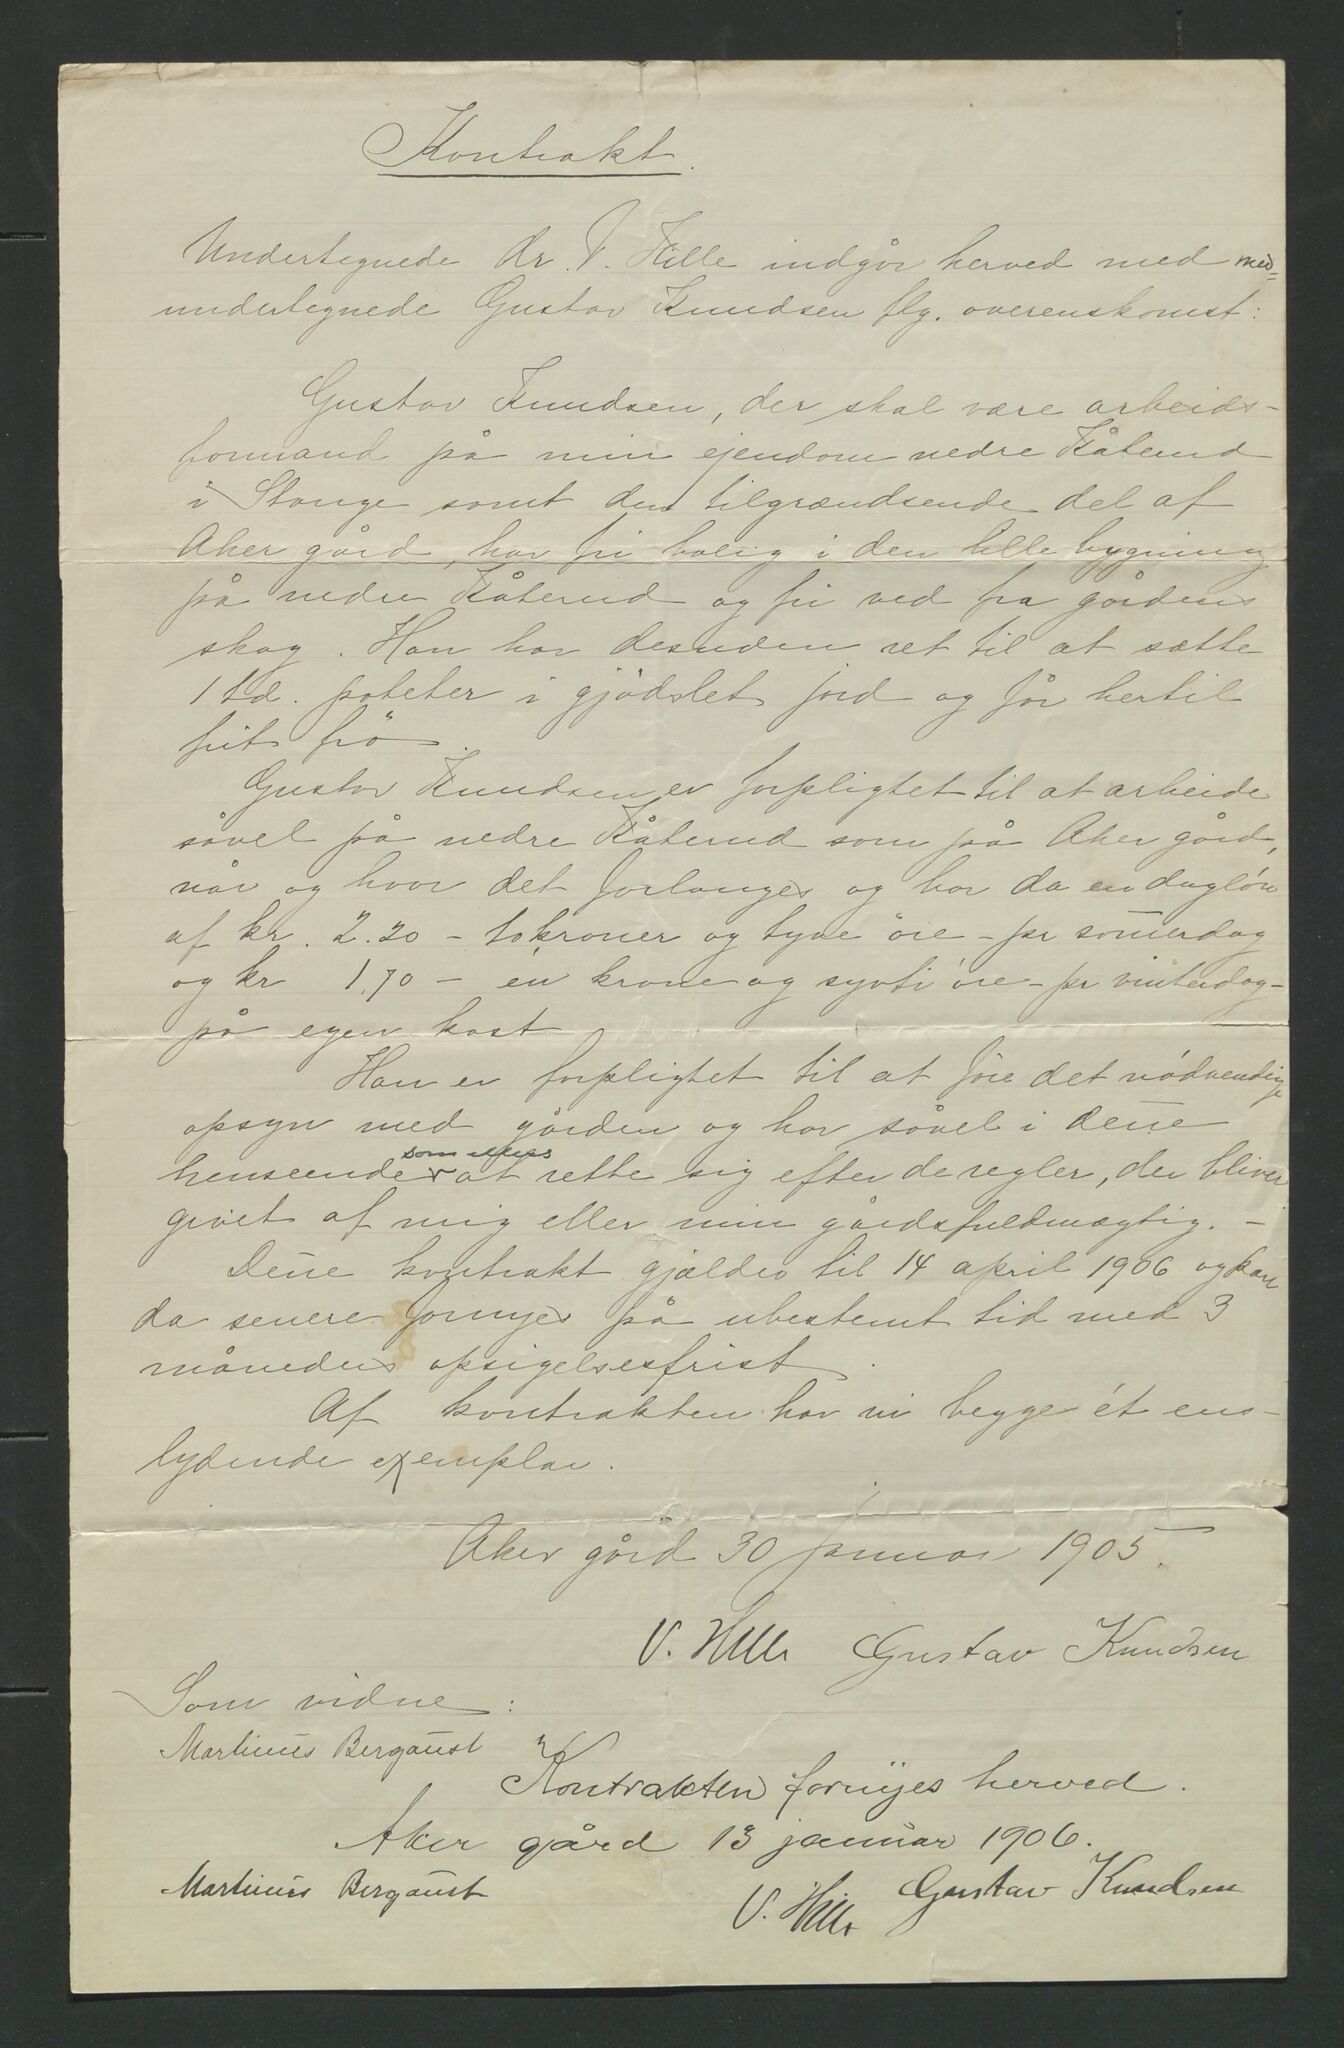 Kontrakt.
Undertegnede dr. V. Hille indgår herved med med=
undertegnede Gustav Knudsen flg. overenskomst:
Gustav Knudsen, der skal være arbeids-
formand på min ejendom nedre Kåterud
i Stange samt den tilgrændsende del af
Aker gård, har fri bolig i den lille bygning
på nedre Kåterud og fri ved fra gårdens
skog. Han har desuden ret til at sætte
1 td. poteter i gjødslet jord og får hertil
frit frö.
Gustav Knudsen er forpligtet til at arbeide
såvel på nedre Kåterud som på Aker gård,
når og hvor det forlanges og har da en dagløn
af kr. 2.20 - to kroner og tyve öre - pr som̅erdag
og kr 1,70 - én krone og sytti öre - pr vinterdag -
på egen kost
Han er forpligtet til at føre det nødvendige
opsyn med gården og har såvel i den̅e
henseende som ellers at rette sig efter de regler, der bliver
givet af mig eller min gårdsfuldmægtig. -
Den̅e kontrakt gjælder til 14 april 1906 og kan
da senere fornyes på ubestemt tid med 3
måneders opsigelsesfrist.
Af kontrakten har vi begge ét ens-
lydende exemplar.
Aker gård 30 januar 1905.
V. Hille Gustav Knudsen
Som vidne:
Martinus Bergaust
Kontrakten fornyes herved.
Aker gård 13 januar 1906.
Martinus Bergaust Gustav Knudsen
V. Hille